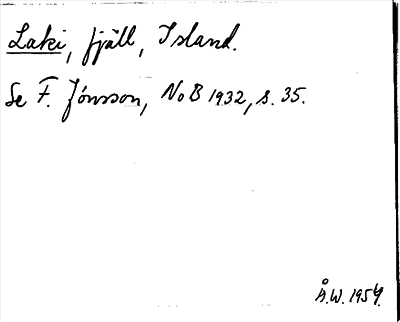 Laki, fjäll, Island.
Se F. Jónsson, NoB 1932, s. 35.
Å.W. 1954.